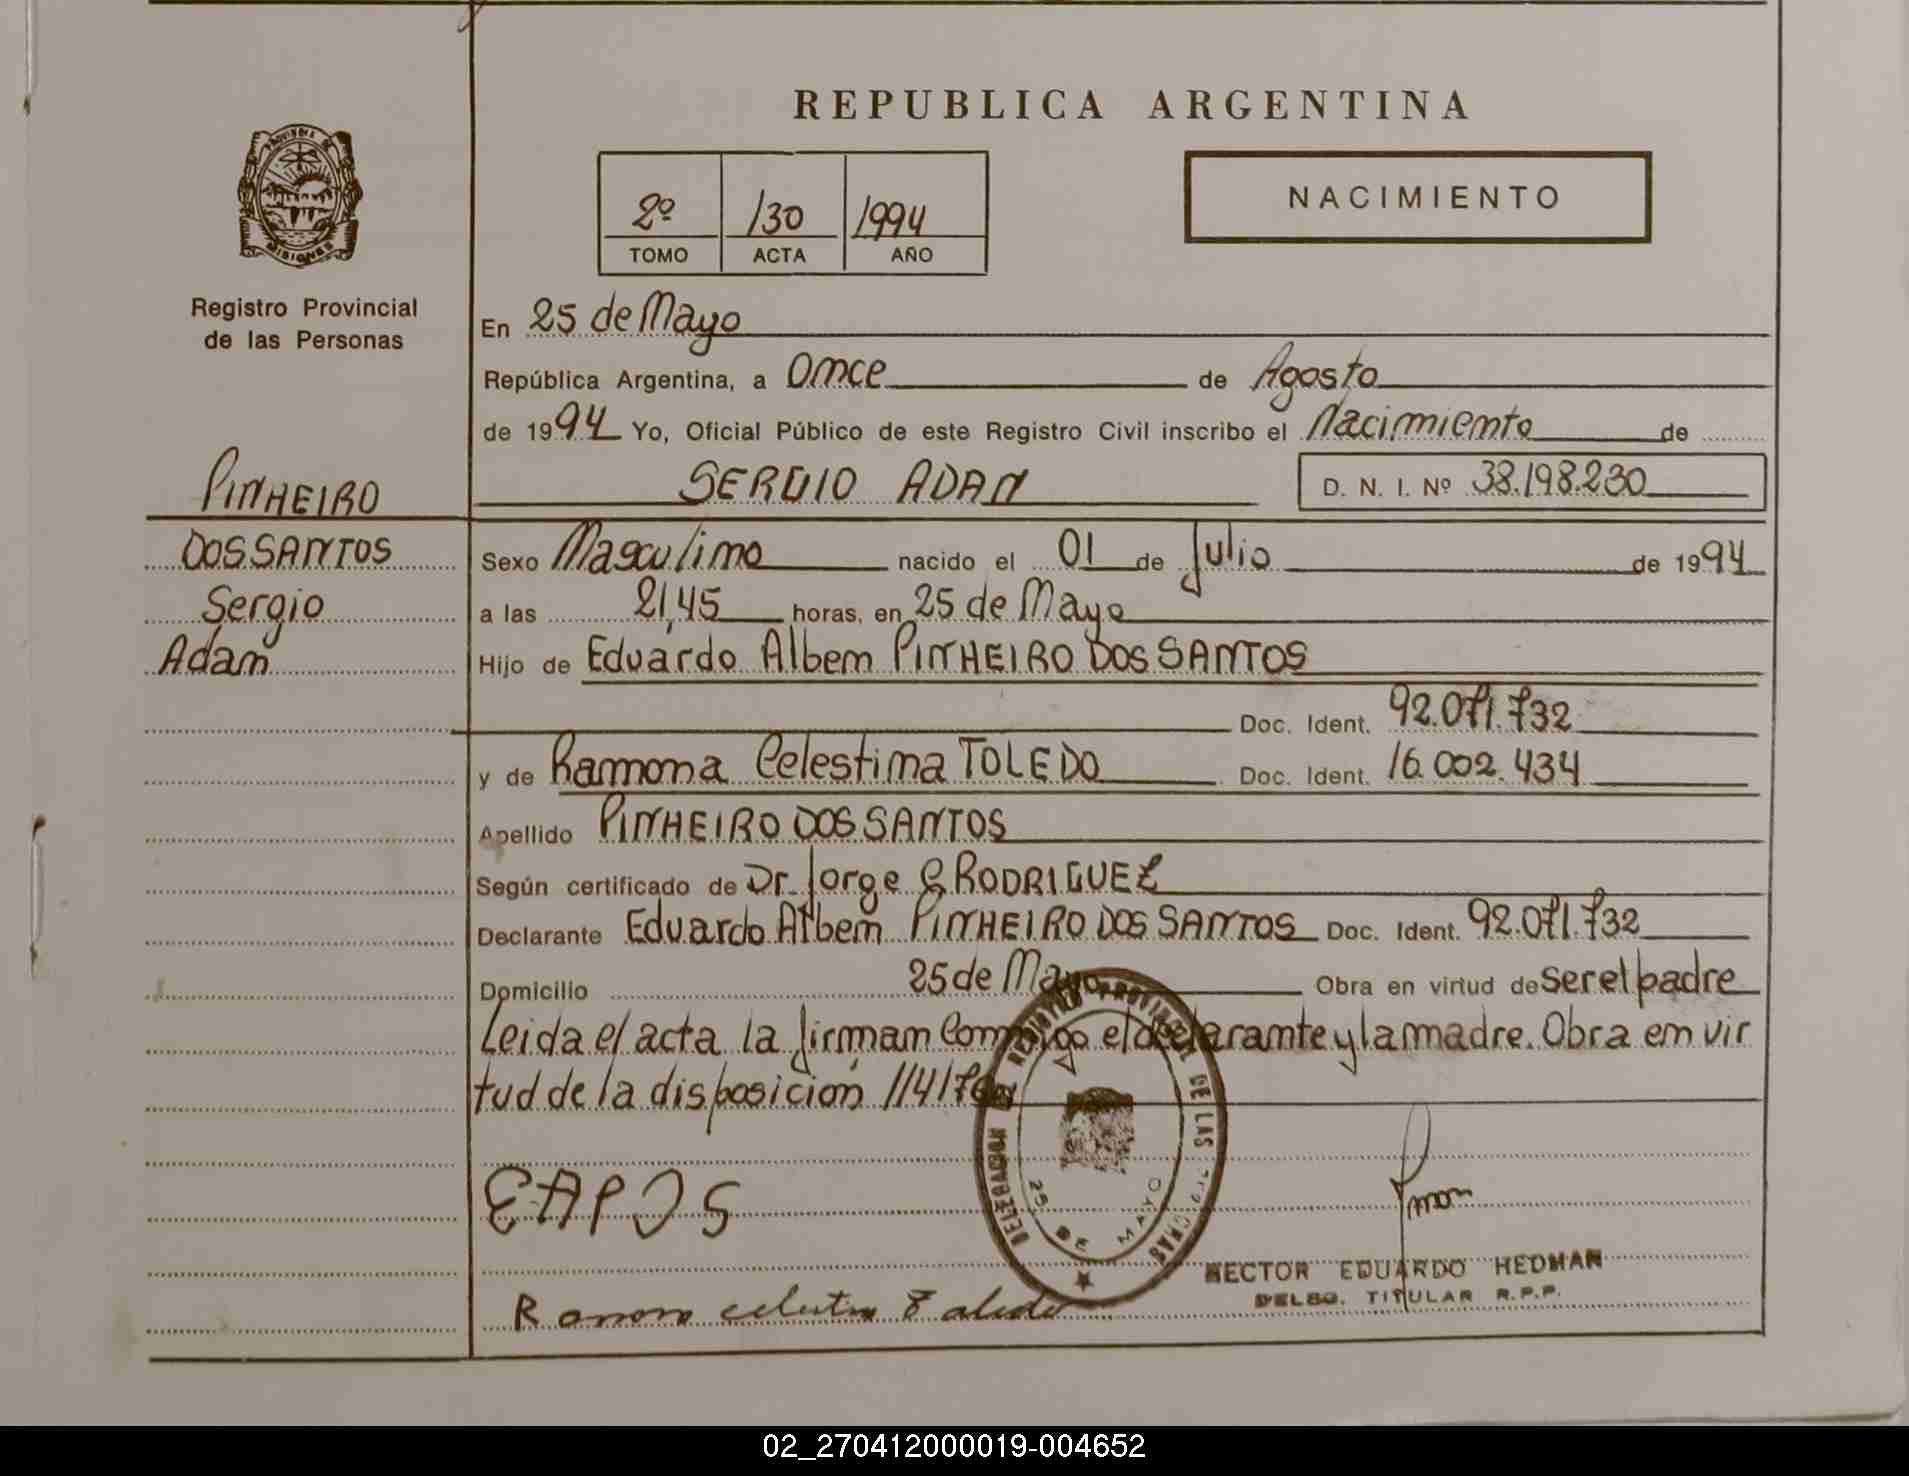 REPUBLICA ARGENTINA
PROVINCIA DE MISIONES
2º 130 1994
TOMO ACTA AÑO
NACIMIENTO
Registro Provincial
de las Personas
En 25 de Mayo
República Argentina, a Once de Agosto
de 1994 Yo, Oficial Público de este Registro Civil inscribo el Nacimiento de
PINHEIRO
DOS SANTOS
Sergio
Adan
SERGIO ADAN D. N. I. Nº 38.198.230
Sexo Masculino nacido el 01 de Julio de 1994
a las 21,45 horas, en 25 de Mayo
Hijo de Eduardo Albem PINHEIRO DOS SANTOS
Doc. Ident. 92.071.732
y de Ramona Celestina TOLEDO Doc. Ident. 16.002.434
Apellido PINHEIRO DOS SANTOS
Según certificado de Dr. Jorge G RODRIGUEZ
Declarante Eduardo Albem PINHEIRO DOS SANTOS Doc. Ident. 92.071.732
Domicilio 25 de Mayo Obra en virtud de ser el padre
Leida el acta la firman conmigo el declarante y la madre. Obra en vir
tud de la disposición 114/76
DELEGACION REGISTRO PROVINCIAL DE LAS PERSONAS
25 DE MAYO
EAPDS
Ramona celestina Toledo
HECTOR EDUARDO HEDMAN
DELEG. TITULAR R.P.P.
02_270412000019-004652